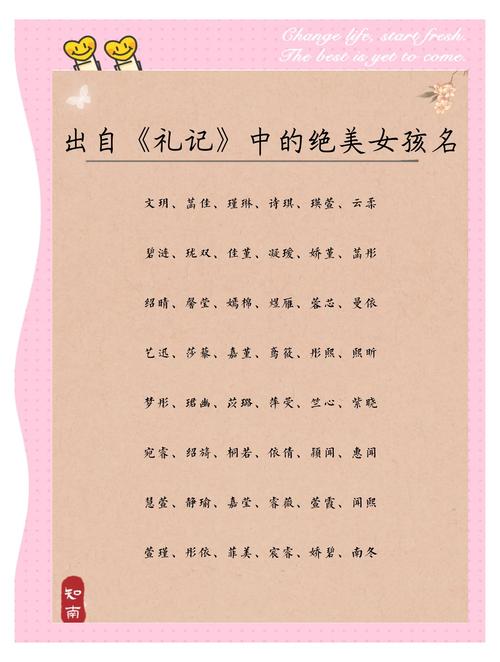 Change life, start fresh.
The best is yet to come.
出自《礼记》中的绝美女孩名
文玥、菡佳、瑾琳、诗琪、瑛萱、云柔
碧涟、珑双、佳堇、凝瑷、娇堇、菡彤
绍晴、馨莹、嫣棉、煜雁、蓉芯、曼依
艺迅、莎蘩、嘉堇、鸢筱、彤熙、熙昕
梦彤、珺幽、茨璐、萍荧、竺心、紫晓
宛睿、绍旖、桐若、依倩、颖闻、惠闻
慧萱、静瑜、嘉莹、睿薇、萱霞、闻熙
萱瑾、彤依、菲美、宸睿、娇碧、南冬
知南